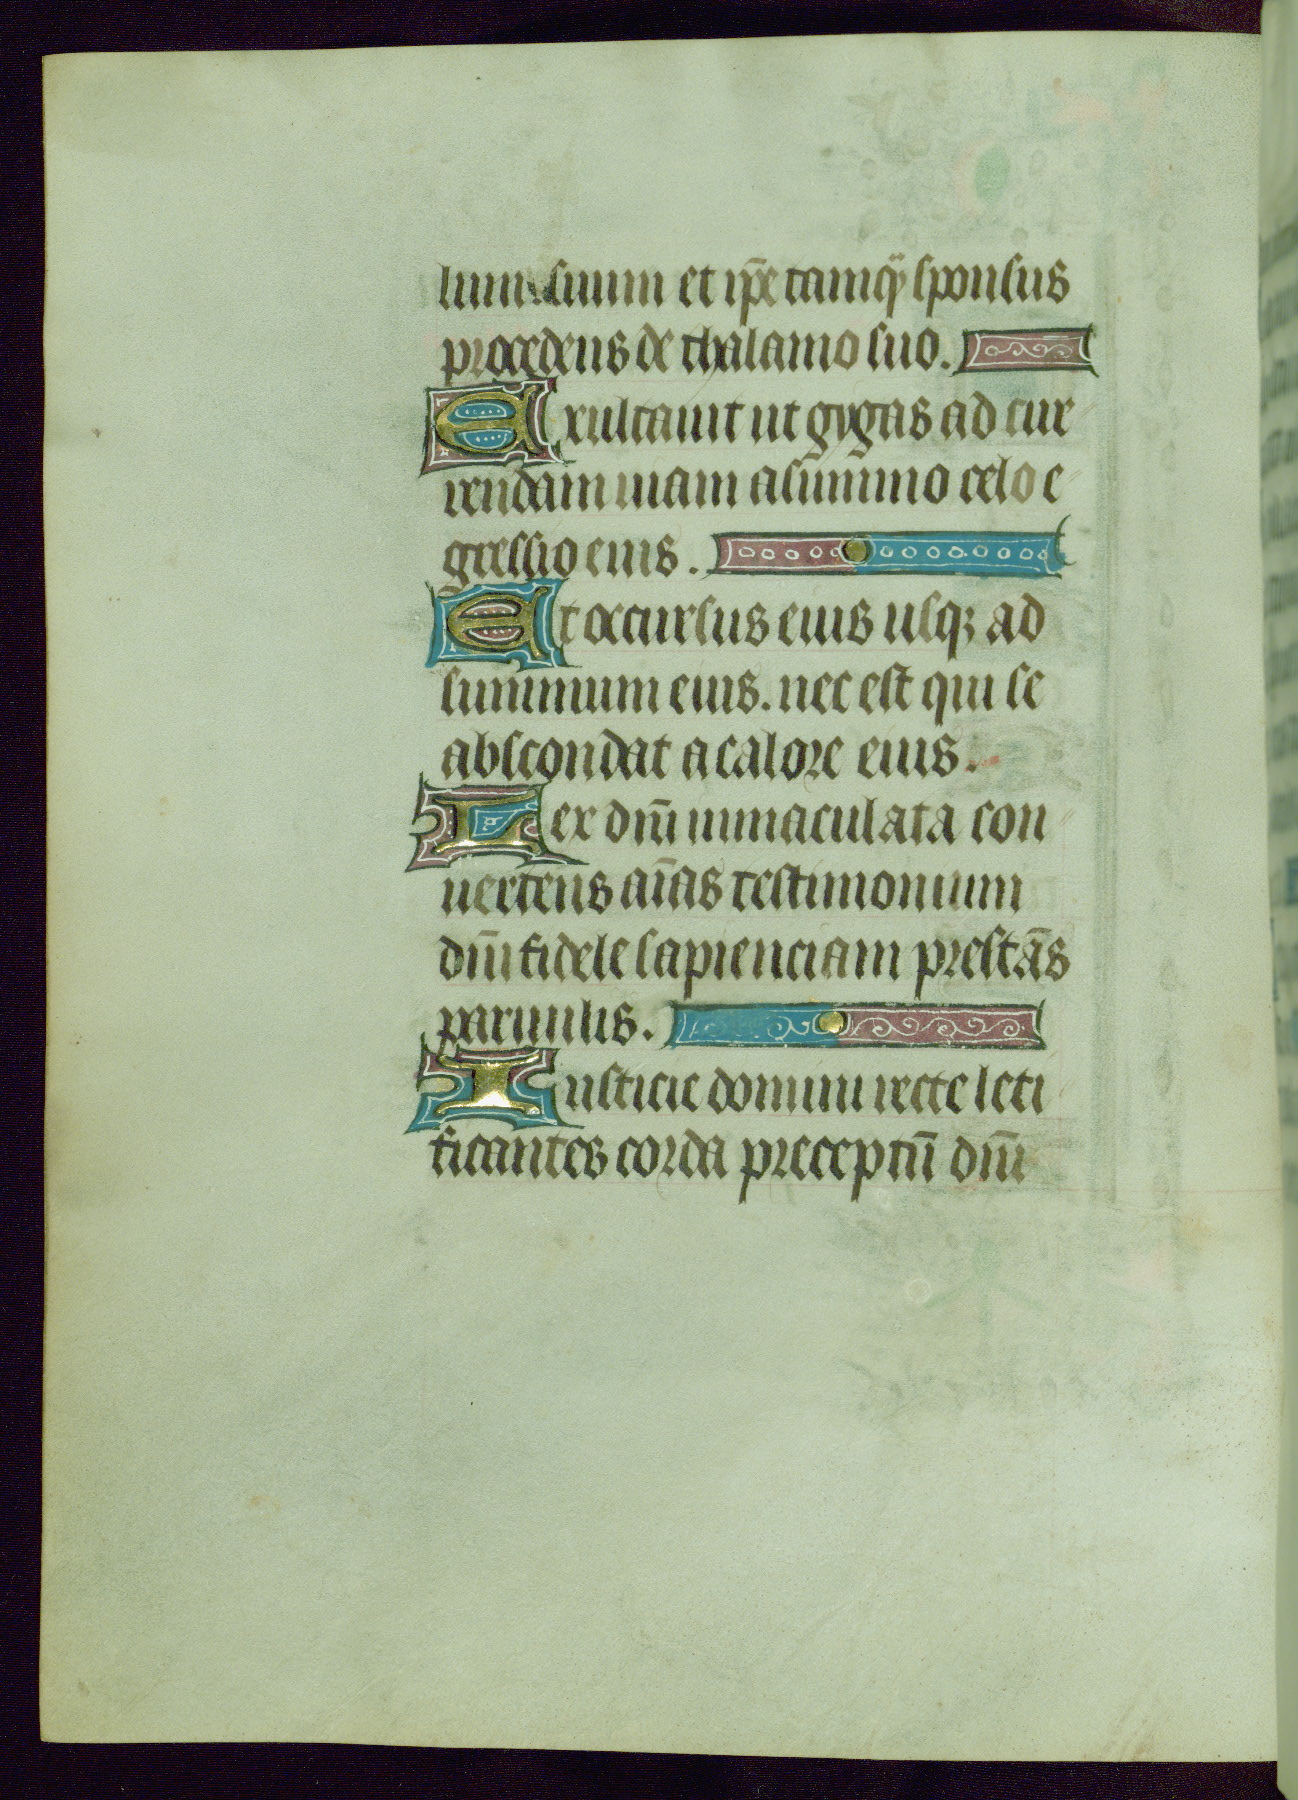 lum suum et ip̄e tamq̄ sponsus
procedens de thalamo suo.
Exultauit ut gygas ad cur
rendam uiam a summo celo e
gressio eius.
Et occursus eius usq; ad
summum eius. nec est qui se
abscondat a calore eius.
Lex dn̄i immaculata con
uertens aīas testimonium
dn̄i fidele sapienciam prestās
paruulis.
Iusticie domini recte leti
ficantes corda preceptū dn̄i